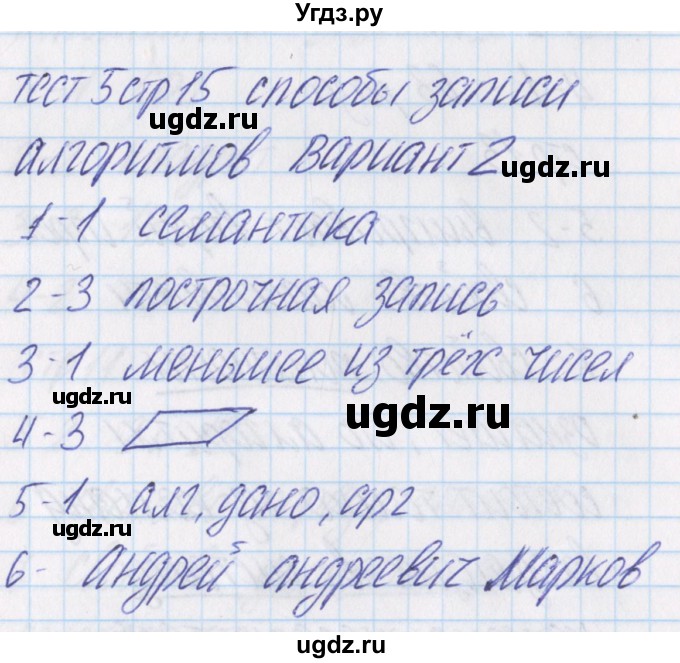 Угдз.ру
тест 5 стр 15 способы записи
ugdz.ru
алгоритмов вариант 2
ugdz.ru
1-1 семантика
2-3 построчная запись
ugdz.ru
3-1 меньшее из трёх чисел
ugdz.ru
ugdz.ru
4-3
5-1 алг, дано, арг
ugdz.ru
6- Андрей андреевич Марков
ugdz.ru